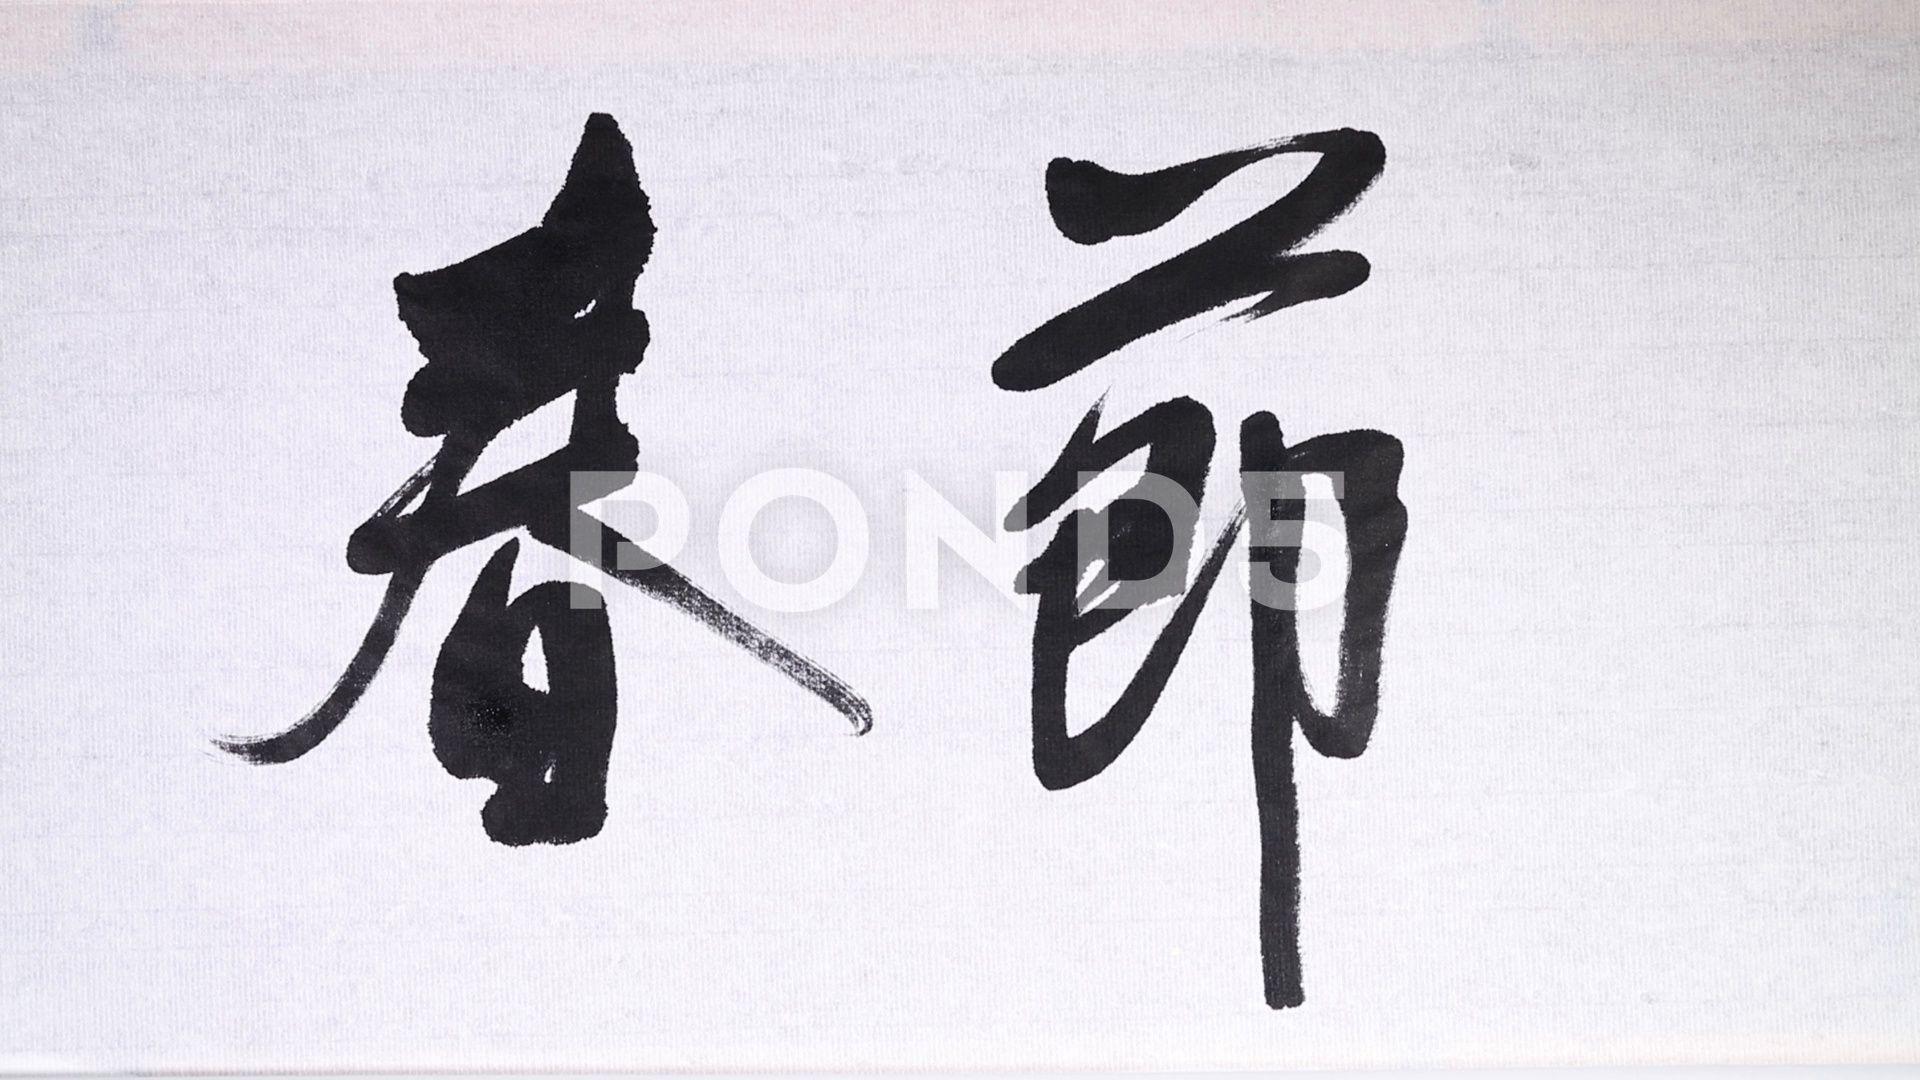 春節
POND5